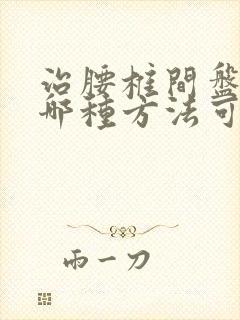 治腰椎間盤
哪種方法可
雨一刀